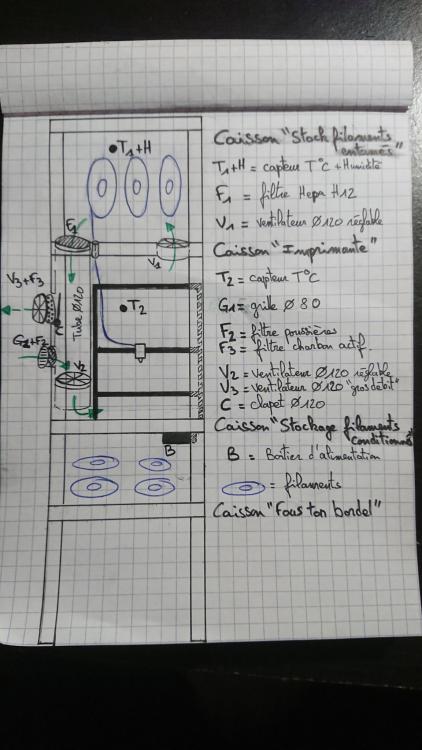 T1+H
F1
V1
V3+F3
C
Tube Ø120
G1+F2
V2
T2
B
Caisson "Stock filaments
entamés"
T1+H = capteur T°C + Humidité
F1 = filtre Hepa H12
V1 = ventilateur Ø120 réglable
Caisson "Imprimante"
T2 = capteur T°C
G1 = grille Ø80
F2 = filtre poussières
F3 = filtre charbon actif.
V2 = ventilateur Ø120 réglable
V3 = ventilateur Ø120 "gros débit"
C = clapet Ø120
Caisson "Stockage filaments
conditionnés"
B = Boîtier d'alimentation
= filaments
Caisson "Fous ton bordel"